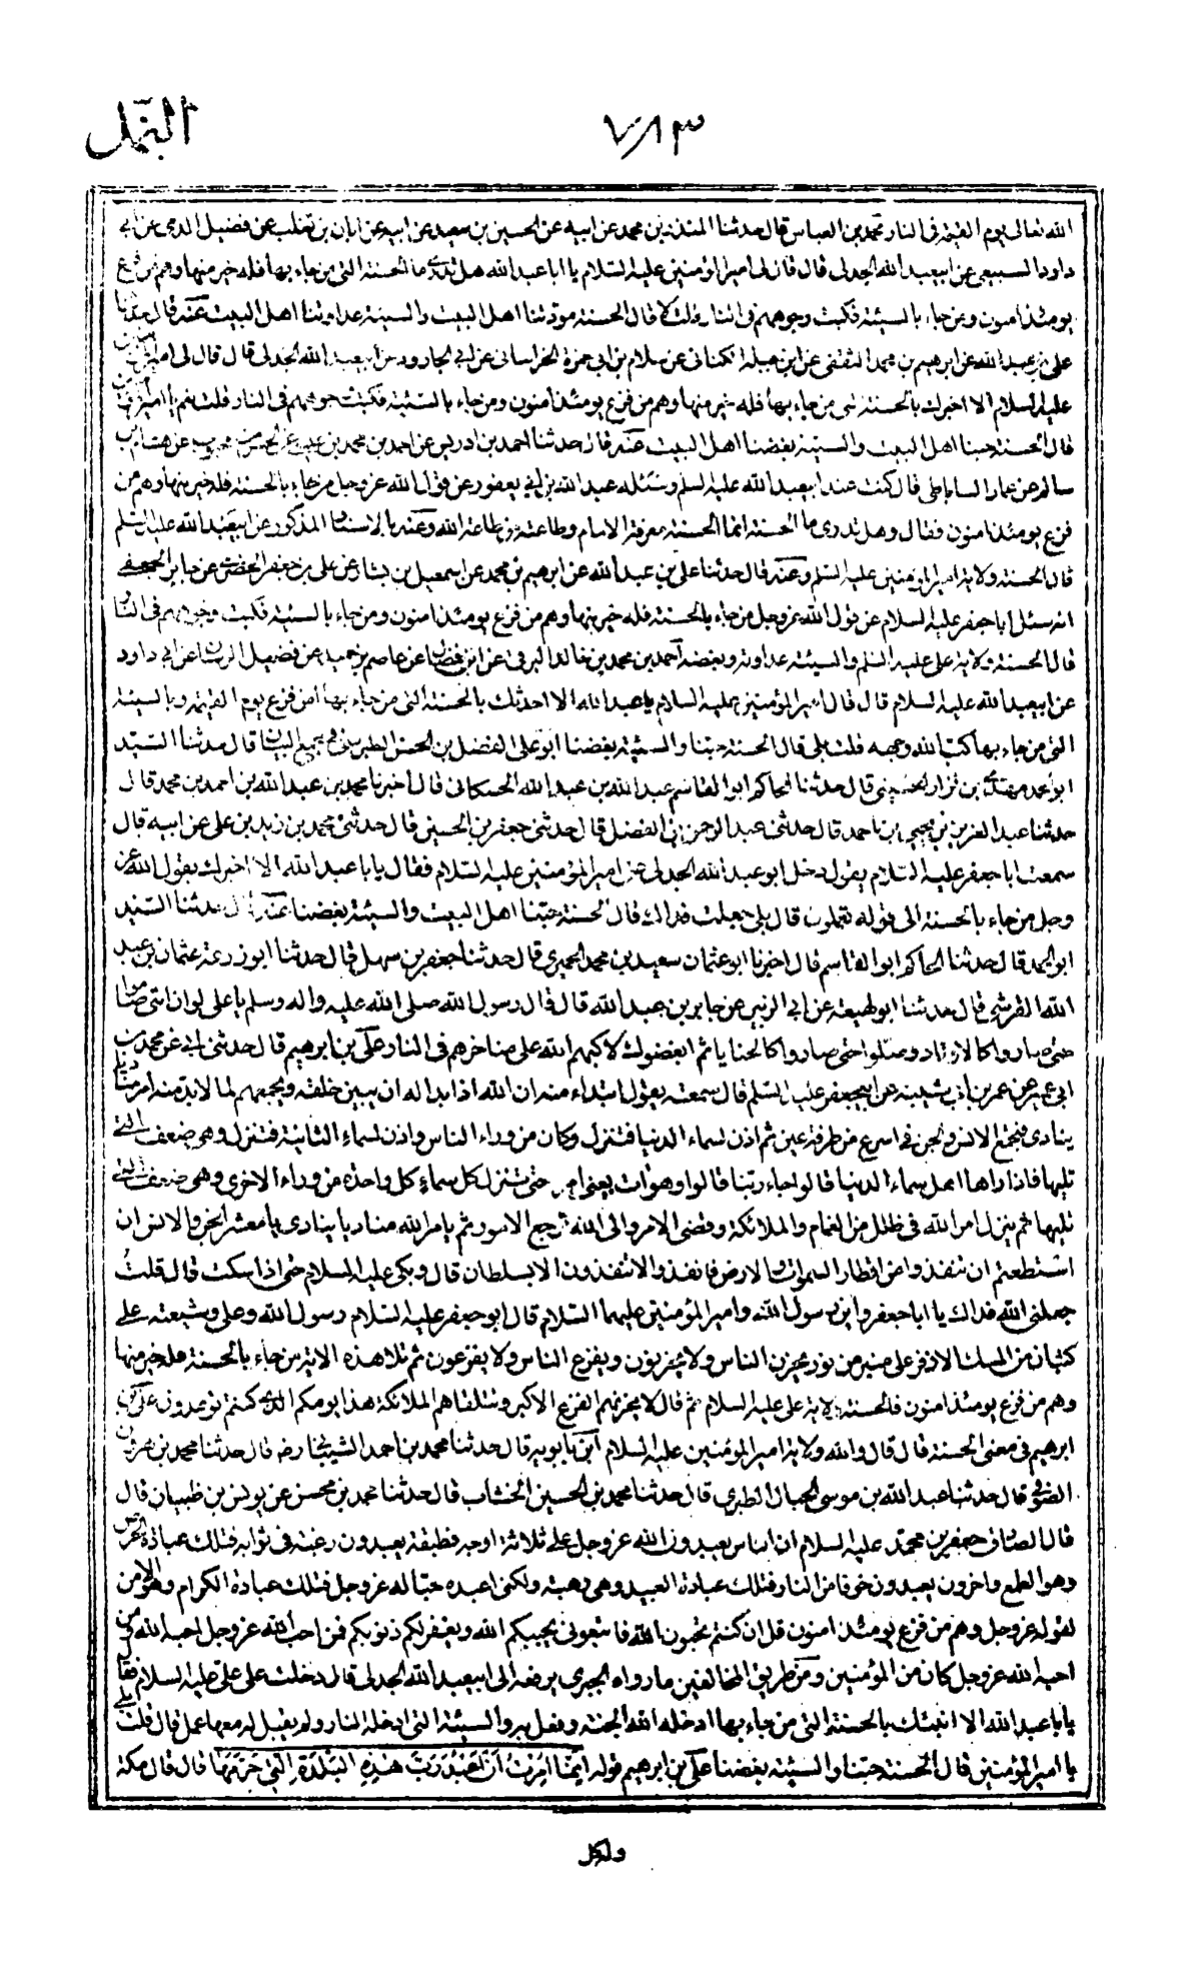 النمل
٧٨٣
الله تعالى يوم القيمة في النار محمد بن العباس قال حدثنا المنذر بن محمد عن ابيه عن الحسين بن سعيد عن ابيه عن ابان بن تغلب عن فضيل عن ابي
داود السبيعي عن ابي عبد الله الجدلي قال قال لي امير المؤمنين عليه السلام يا ابا عبد الله هل تدري ما الحسنة التي من جاء بها فله خير منها وهم من فزع
يومئذ امنون ومن جاء بالسيئة فكبت وجوههم في النار قلت لا قال الحسنة مودتنا اهل البيت والسيئة عداوتنا اهل البيت عنه قال حدثنا
علي بن عبد الله عن ابرهيم بن محمد الثقفي عن ابن جبلة الكناني عن سلام بن ابي حمزة الخراساني عن ابي الجارود عن ابي عبد الله الجدلي قال قال لي امير المؤمنين
عليه السلام الا اخبرك بالحسنة التي من جاء بها فله خير منها وهم من فزع يومئذ امنون ومن جاء بالسيئة فكبت وجوههم في النار قلت نعم يا امير المؤمنين
قال الحسنة حبنا اهل البيت والسيئة بغضنا اهل البيت عنه قال حدثنا احمد بن ادريس عن احمد بن محمد بن عيسى عن الحسن بن محبوب عن هشام بن
سالم عن عمار الساباطي قال كنت عند ابي عبد الله عليه السلم وسئله عبد الله بن ابي يعفور عن قول الله عز وجل من جاء بالحسنة فله خير منها وهم من
فزع يومئذ امنون فقال وهل تدري ما الحسنة انما الحسنة معرفة الامام وطاعته وطاعته الله وعنه بالاسناد المذكور عن ابي عبد الله عليه السلم
قال الحسنة ولاية امير المؤمنين عليه السلم وعنه قال حدثنا علي بن عبد الله عن ابرهيم بن محمد عن اسمعيل بن بشار عن علي بن جعفر الحضرمي عن جابر الجعفي
انه سئل ابا جعفر عليه السلام عن قول الله عز وجل من جاء بالحسنة فله خير منها وهم من فزع يومئذ امنون ومن جاء بالسيئة فكبت وجوههم في النار
قال الحسنة ولاية علي عليه السلم والسيئة عداوته وبغضه احمد بن محمد بن خالد البرقي عن ابن فضال عن عاصم بن حميد عن فضيل الرسان عن ابي داود
عن ابي عبد الله عليه السلام قال قال امير المؤمنين عليه السلام يا عبد الله الا احدثك بالحسنة التي من جاء بها امن فزع يوم القيمة وبالسيئة
التي من جاء بها كب الله وجهه قلت بلى قال الحسنة حبنا والسيئة بغضنا ابو علي الفضل بن الحسن الطبرسي في مجمع البيان قال حدثنا السيد
ابو محمد مهدي بن نزار الحسيني قال حدثنا الحاكم ابو القاسم عبد الله بن عبد الله الحسكاني قال اخبرنا محمد بن عبد الله بن احمد بن محمد قال
حدثنا عبد العزيز بن يحيى بن احمد قال حدثني عبد الرحمن بن الفضل قال حدثني جعفر بن الحسين قال حدثني محمد بن زيد بن علي عن ابيه قال
سمعت ابا جعفر عليه السلام يقول دخل ابو عبد الله الجدلي على امير المؤمنين عليه السلام فقال يا با عبد الله الا اخبرك بقول الله عز
وجل من جاء بالحسنة الى قوله تعملون قال بلى جعلت فداك قال الحسنة حبنا اهل البيت والسيئة بغضنا عنه قال حدثنا السيد
ابو الحمد قال حدثنا الحاكم ابو القاسم قال اخبرنا ابو عثمان سعيد بن محمد الحميري قال حدثنا جعفر بن سهل قال حدثنا ابو زرعة عثمان بن عبد
الله القرشي قال حدثنا ابو لهيعة عن ابي الزبير عن جابر بن عبد الله قال قال رسول الله صلى الله عليه واله وسلم يا علي لو ان امتي صاموا
حتى صاروا كالاوتاد وصلوا حتى صاروا كالحنايا ثم ابغضوك لاكبهم الله على مناخرهم في النار علي بن ابرهيم قال حدثني ابي عن محمد بن
ابي عمير عن عمر بن اذينة عن ابي جعفر عليه السلم قال سمعته يقول ابتداء منه ان الله اذا بدا له ان يبين خلقه ويجمعهم لما لا بد منه امر مناديا
ينادي فتجمع الانس والجن في اسرع من طرفة عين ثم اذن لسماء الدنيا فتنزل وكان من وراء الناس واذن لسماء الثانية فتنزل وهي ضعف التي
تليها فاذا راها اهل سماء الدنيا قالوا جاء ربنا قالوا وهو ات يعني امره حتى تنزل كل سماء كل واحدة من وراء الاخرى وهي ضعف التي
تليها ثم ينزل امر الله في ظلل من الغمام والملائكة وقضي الامر والى الله ترجع الامور ثم يامر الله مناديا ينادي يا معشر الجن والانس ان
استطعتم ان تنفذوا من اقطار السموات والارض فانفذوا لا تنفذون الا بسلطان قال وبكى عليه السلام حتى اذا سكت قال قلت
جعلني الله فداك يا ابا جعفر واين رسول الله وامير المؤمنين عليهما السلام قال ابو جعفر عليه السلام رسول الله وعلي وشيعته على
كثبان من المسك الاذفر على منبر من نور يحزن الناس ولا يحزنون ويفزع الناس ولا يفزعون ثم تلا هذه الاية من جاء بالحسنة فله خير منها
وهم من فزع يومئذ امنون فالحسنة ولاية علي عليه السلام ثم قال لا يحزنهم الفزع الاكبر وتتلقاهم الملائكة هذا يومكم الذي كنتم توعدون علي بن
ابرهيم في معنى الحسنة قال قال والله ولاية امير المؤمنين عليه السلام ابن بابويه قال حدثنا محمد بن احمد الشيباني رضه قال حدثنا محمد بن هرون
الصوفي قال حدثنا عبد الله بن موسى الحبال الطبري قال حدثنا محمد بن الحسين الخشاب قال حدثنا محمد بن محسن عن يونس بن ظبيان قال
قال الصادق جعفر بن محمد عليه السلام ان الناس يعبدون الله عز وجل على ثلاثة اوجه فطبقة يعبدون رغبة في ثوابه فتلك عبادة الحرص
وهو الطمع واخرون يعبدون خوفا من النار فتلك عبادة العبيد وهي رهبة ولكني اعبده حبا له عز وجل فتلك عبادة الكرام وهو الامن
لقوله عز وجل وهم من فزع يومئذ امنون قل ان كنتم تحبون الله فاتبعوني يحببكم الله ويغفر لكم ذنوبكم فمن احب الله عز وجل احبه الله ومن
احبه الله عز وجل كان من المؤمنين ومن طريق المخالفين ما رواه الحبري يرفعه الى ابي عبد الله الجدلي قال دخلت على علي عليه السلام فقال
يا با عبد الله الا انبئك بالحسنة التي من جاء بها ادخله الله الجنة وفعل به والسيئة التي ادخله النار ولم يقبل له معها عمل قال قلت بلى
يا امير المؤمنين قال الحسنة حبنا والسيئة بغضنا علي بن ابرهيم قوله انما امرت ان اعبد رب هذه البلدة التي حرمها قال قال مكة
ولكل